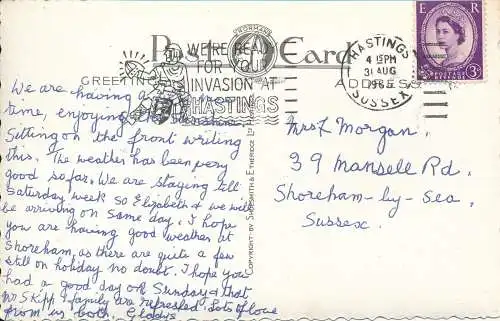 NORMAN
Post Card
WE'RE READY
FOR YOUR
INVASION AT
HASTINGS
HASTINGS
4 15 PM
31 AUG
1965
SUSSEX
E R
POSTAGE REVENUE
3D
GREETINGS
ADDRESS
We are having a
time, enjoying the sunshine
Sitting on the front writing
this. The weather has been very
good so far. We are staying till
Saturday week so Elizabeth & we will
be arriving on same day. I hope
you are having good weather at
Shoreham, as there are quite a few
still on holiday no doubt. I hope you
had a good day on Sunday & that
Mr Skipp & family are refreshed. Lots of love
from us both. Gladys
COPYRIGHT BY SHOESMITH & ETHERIDGE LTD
Mrs F. Morgan.
39 Mansell Rd.
Shoreham-by-Sea.
Sussex.